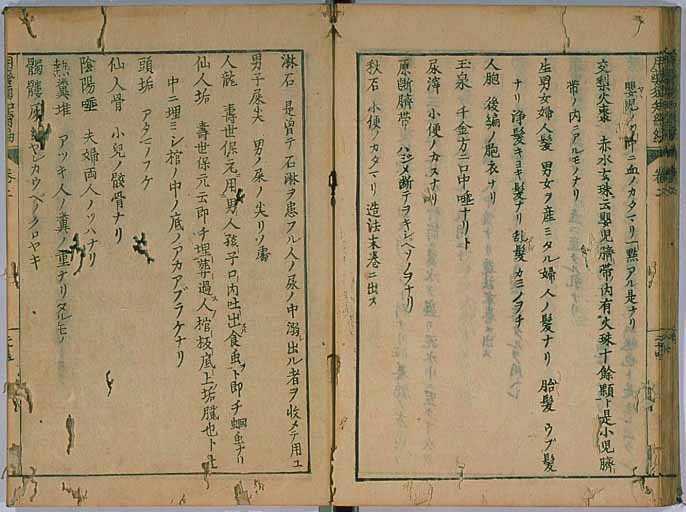 嬰児ノ 中ニ血ノカタマリ一點アル是ナリ
交梨火棗 赤水玄珠云嬰兒臍帶内有火珠十餘顆ト是小児臍
帶ノ内ニアルモノナリ
生男女婦人髮 男女ヲ産ミタル婦人ノ髮ナリ 胎髮 ウブ髮
ナリ 浄髮キヨキ髮ナリ 乱髮カミノヲチ
人胞 後編ノ胞衣ナリ
玉泉 千金方ニ口中唾ナリト
尿滓 小便ノカスナリ
原断臍帶 ハジメ断テヲキシヘソノヲナリ
秋石 小便ノカタマリ 造法末巻ニ出ス
淋石 是曽テ石淋ヲ患フル人ノ尿ノ中溺出ル者ヲ收メテ用ユ
男子屎尖 男ノ尿ノ尖リソ書
人龍 壽世保元用男人孩子口内吐出食虫ト即チ蛔虫ナリ
仙人垢 壽世保元云即チ埋葬過人棺板底上垢膩也ト土
中ニ埋ミシ棺ノ中ノ底ノアカアブラケナリ
頭垢 アタマノフケ
仙人骨 小児ノ骸骨ナリ
陰陽唾 夫婦両人ノツハナリ
熱糞堆 アツキ人ノ糞ノ重ナリタルモノ
髑髏灰 ヤシカウベノクロヤキ